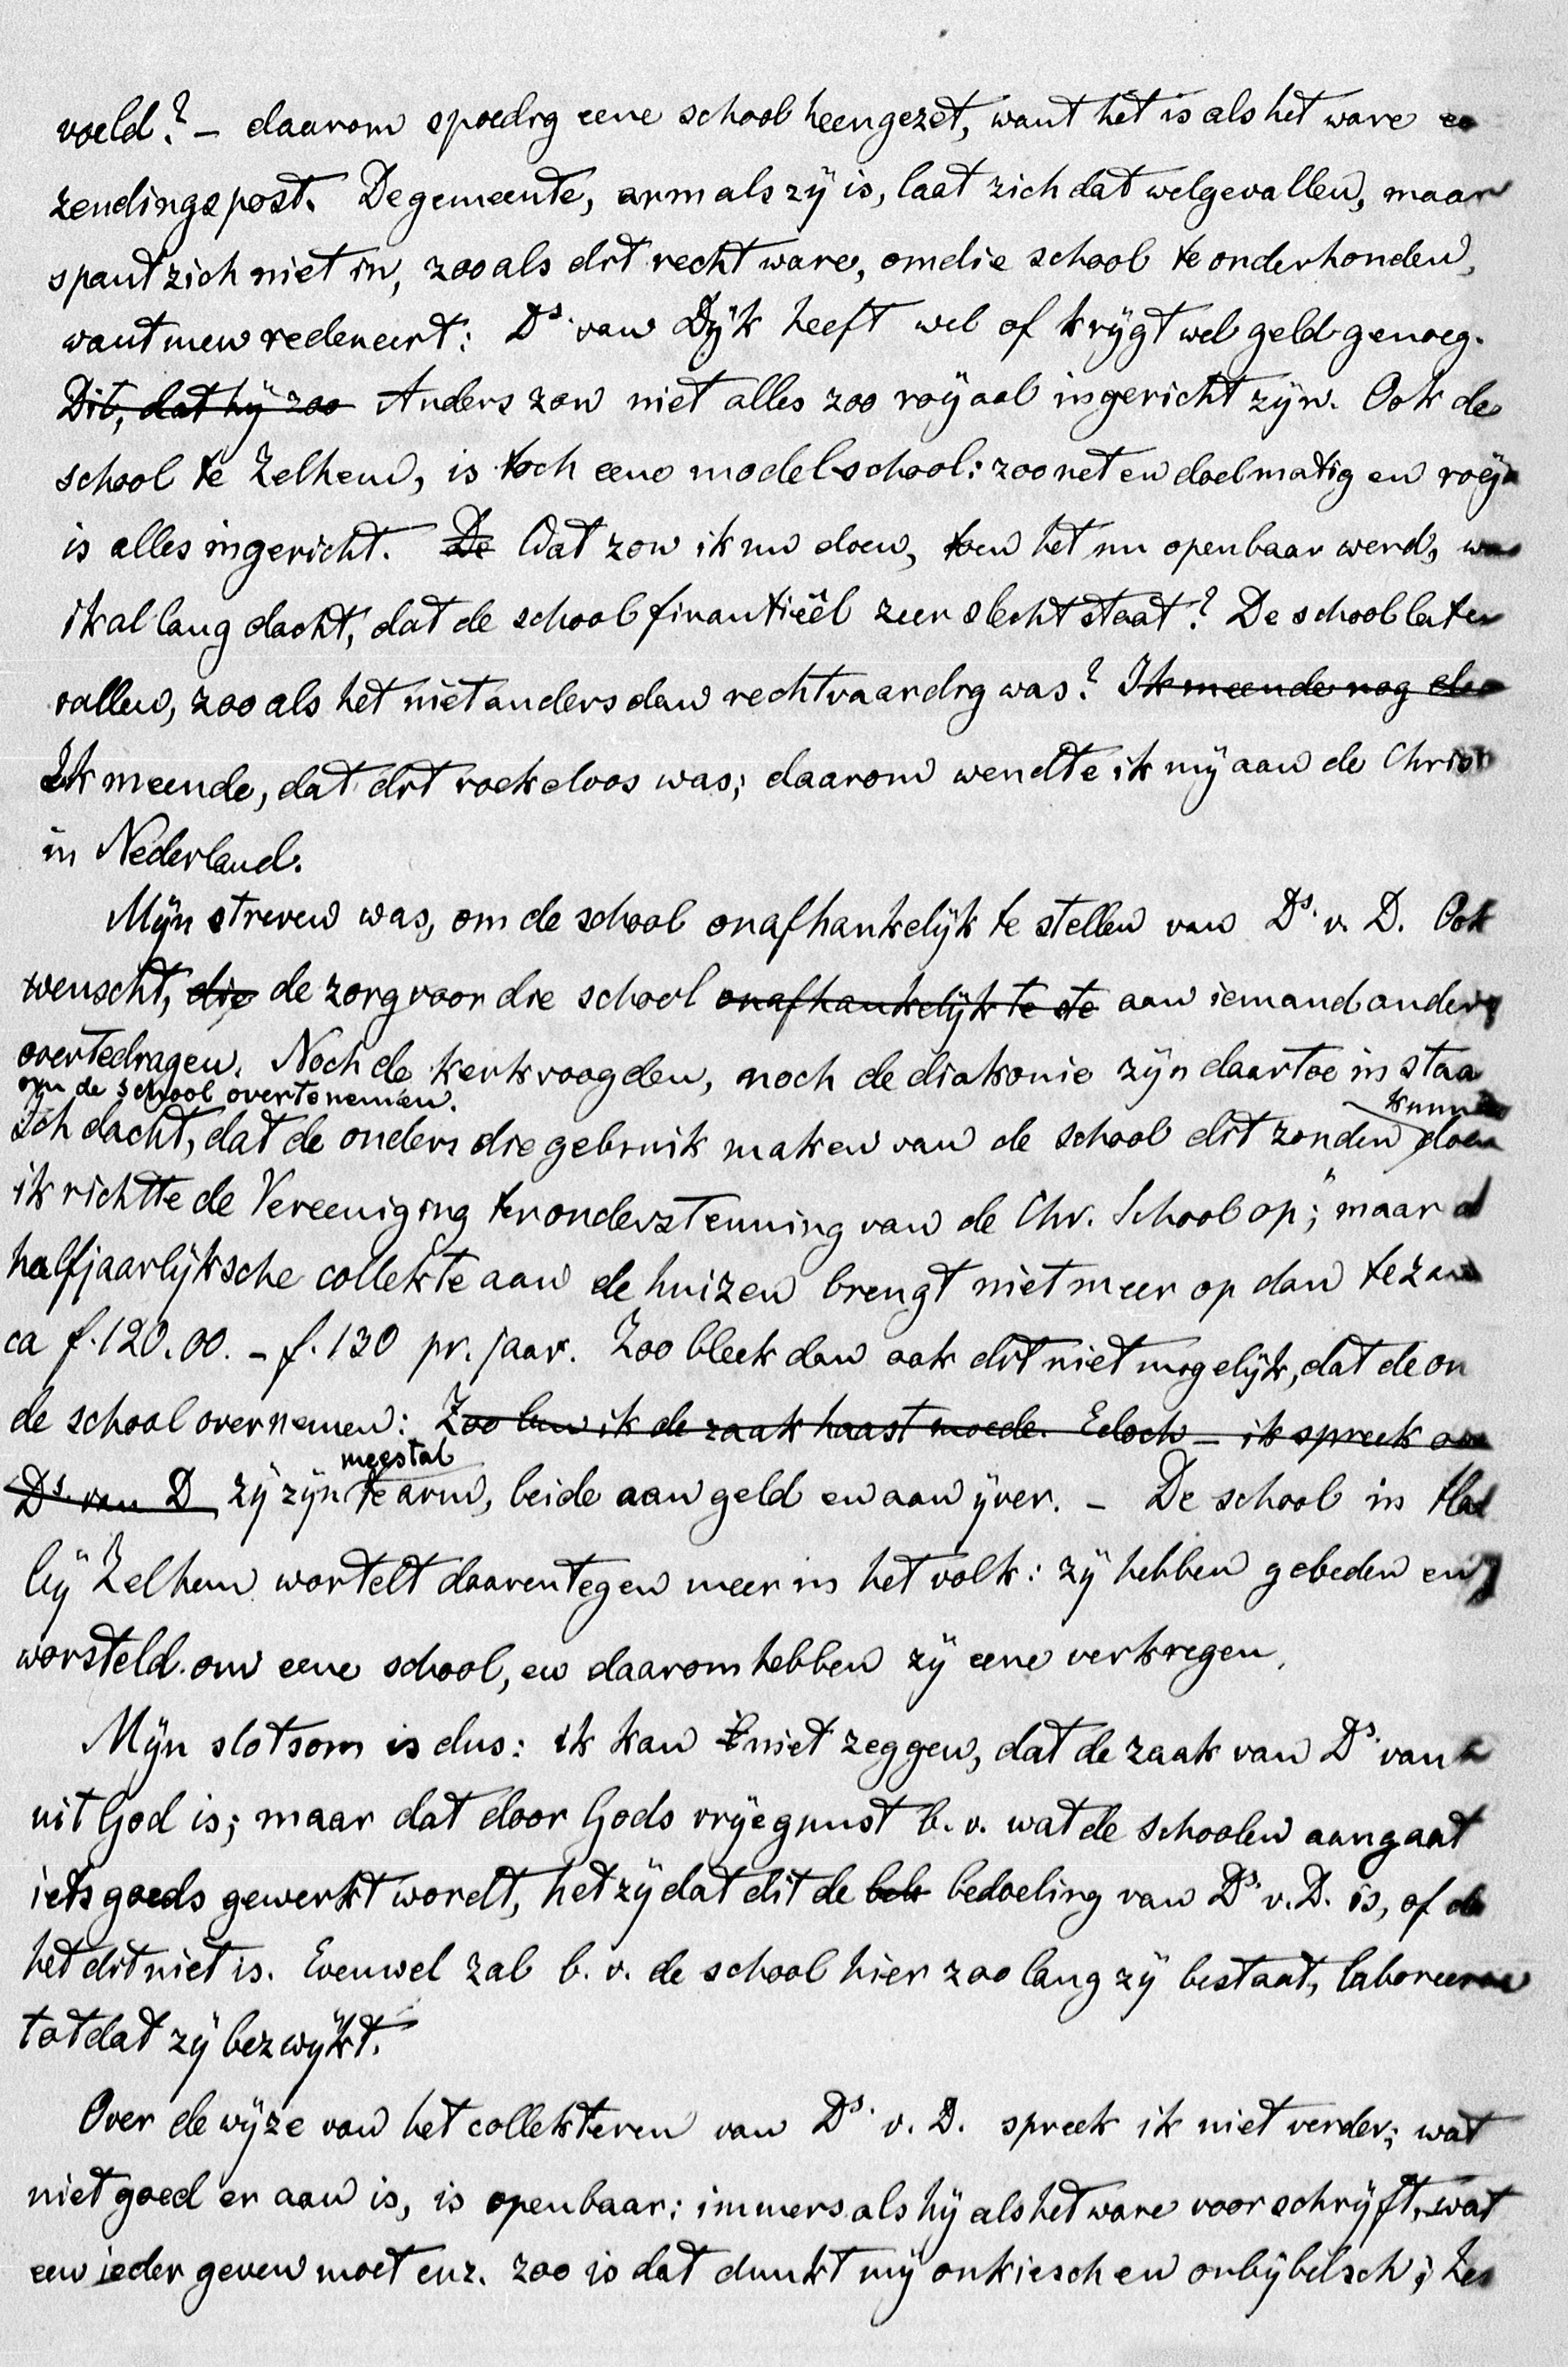 voeld? – daarom spoedig eene school heengezet, want het is als het ware
zendingspost. De gemeente, arm als zij is, laat zich dat welgevallen, maar
spant zich niet in, zooals dit recht ware, om die school te onderhouden,
want men redeneert: Ds. van Dijk heeft wel of krijgt wel geld genoeg.
Dit, dat hij zoo Anders zou niet alles zoo royaal ingericht zijn. Ook de
school te Zelhem, is toch eene modelschool: zoo net en doelmatig en
is alles ingericht. De Wat zou ik nu doen, toen het nu openbaar werd,
ik al lang dacht, dat de school finantieël zeer slecht staat? De school laten
vallen, zooals het niet anders dan rechtvaardig was? Ik meende nog
Ik meende, dat dit roekeloos was; daarom wendte ik mij aan de Christ
in Nederland.
Mijn streven was, om de school onafhankelijk te stellen van Ds. v. D. Ook
wenscht, die de zorg voor die school onafhankelijk te ste aan iemand anders
overtedragen. Noch de kerkvoogden, noch de diakonie zijn daartoe in staa
om de school overtenemen.
Ich dacht, dat de ouders die gebruik maken van de school dit zouden kunnen doen
ik richtte de Vereeniging ter ondersteuning van de Chr. School op;" maar d
halfjaarlijksche collekte aan de huizen brengt niet meer op dan
ca f. 120.00. – f. 130 pr. jaar. Zoo bleek dan ook dit niet mogelijk, dat de ou
de school overnemen: Zoo ben ik de zaak haast moede. Edoch – ik spreek
Ds. van D zij zijn meestal te arm, beide aan geld en aan ijver. – De school in
bij Zelhem wortelt daarentegen meer in het volk: zij hebben gebeden en
worsteld om eene school, en daarom hebben zij eene verkregen.
Mijn slotsom is dus: ik kan niet zeggen, dat de zaak van Ds. van
uit God is; maar dat door Gods vrije gunst b. v. wat de schoolen aangaat
iets goeds gewerkt wordt, hetzij dat dit de bedoeling van Ds. v. D. is, of
het dit niet is. Evenwel zal b. v. de school hier zoo lang zij bestaat, laboreeren
totdat zij bezwijkt.
Over de wijze van het collekteren van Ds. v. D. spreek ik niet verder; wat
niet goed er aan is, is openbaar: immers als hij als het ware voorschrijft, wat
een ieder geven moet enz. zoo is dat dunkt mij onkiesch en onbijbelsch;